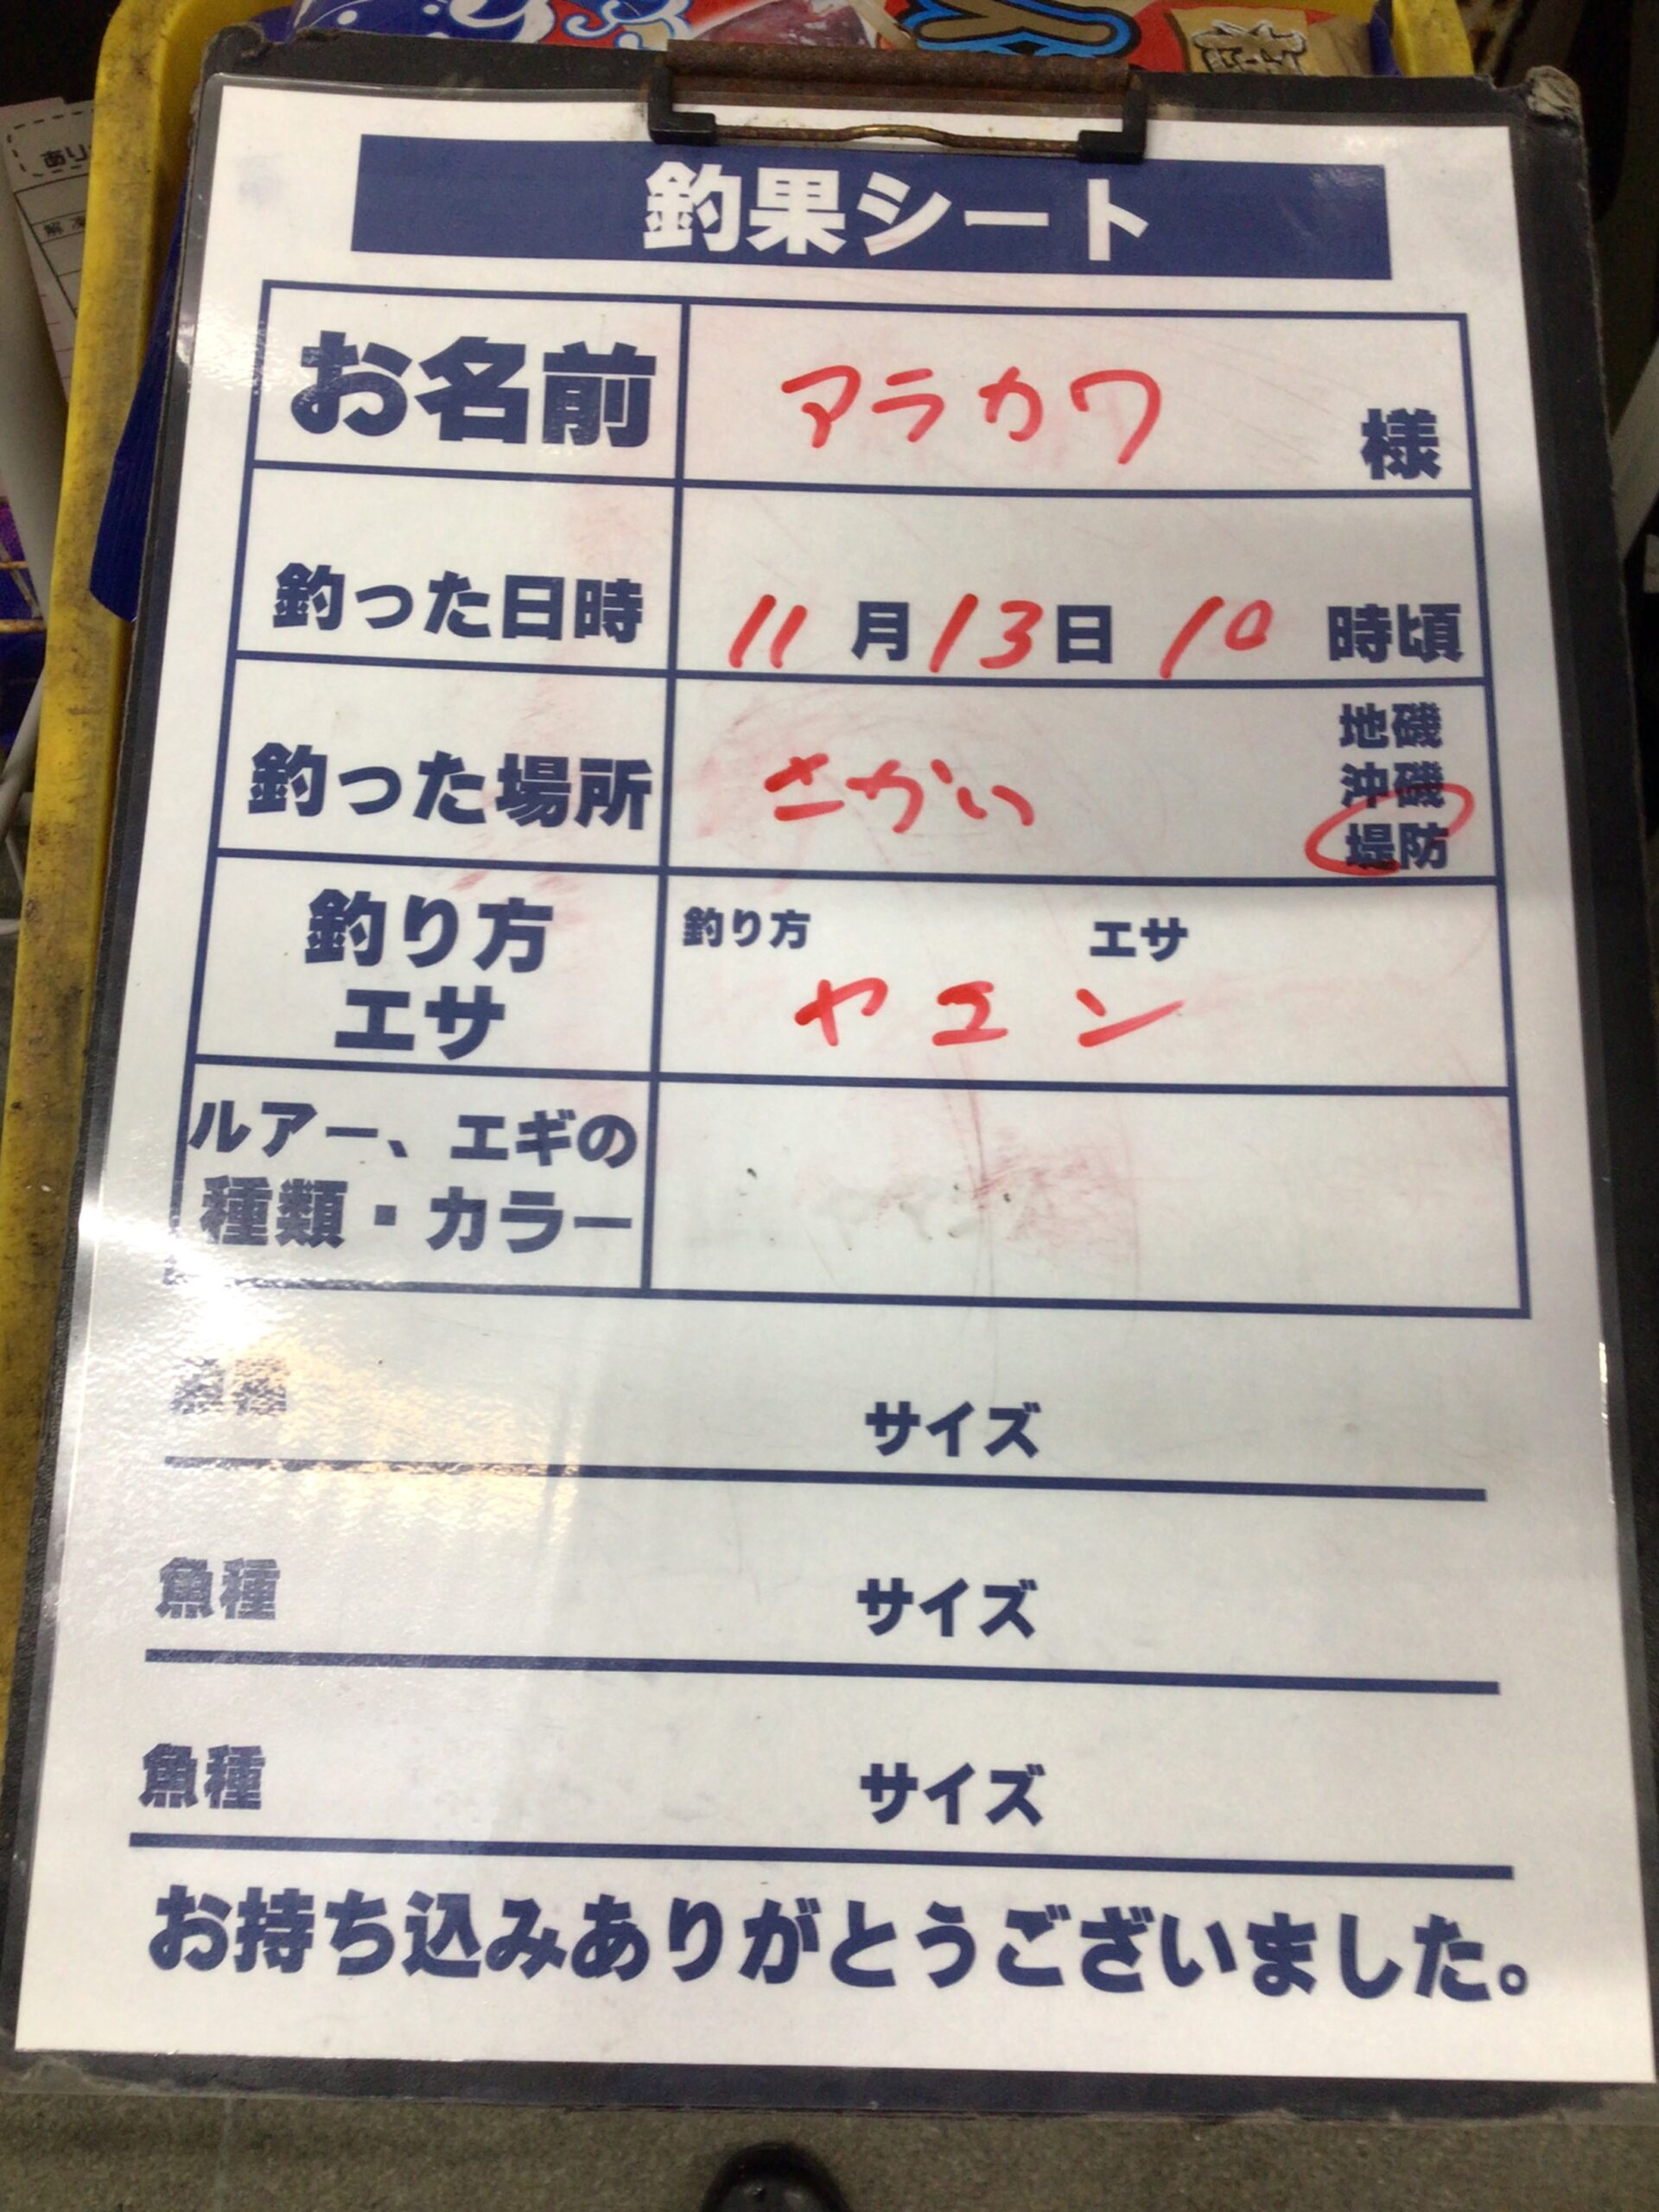 釣果シート
お名前 アラカワ 様
釣った日時 11月13日 10時頃
釣った場所 さかい
地磯
沖磯
堤防
釣り方
エサ
釣り方 エサ
ヤエン
ルアー、エギの
種類・カラー
魚種 サイズ
魚種 サイズ
魚種 サイズ
お持ち込みありがとうございました。